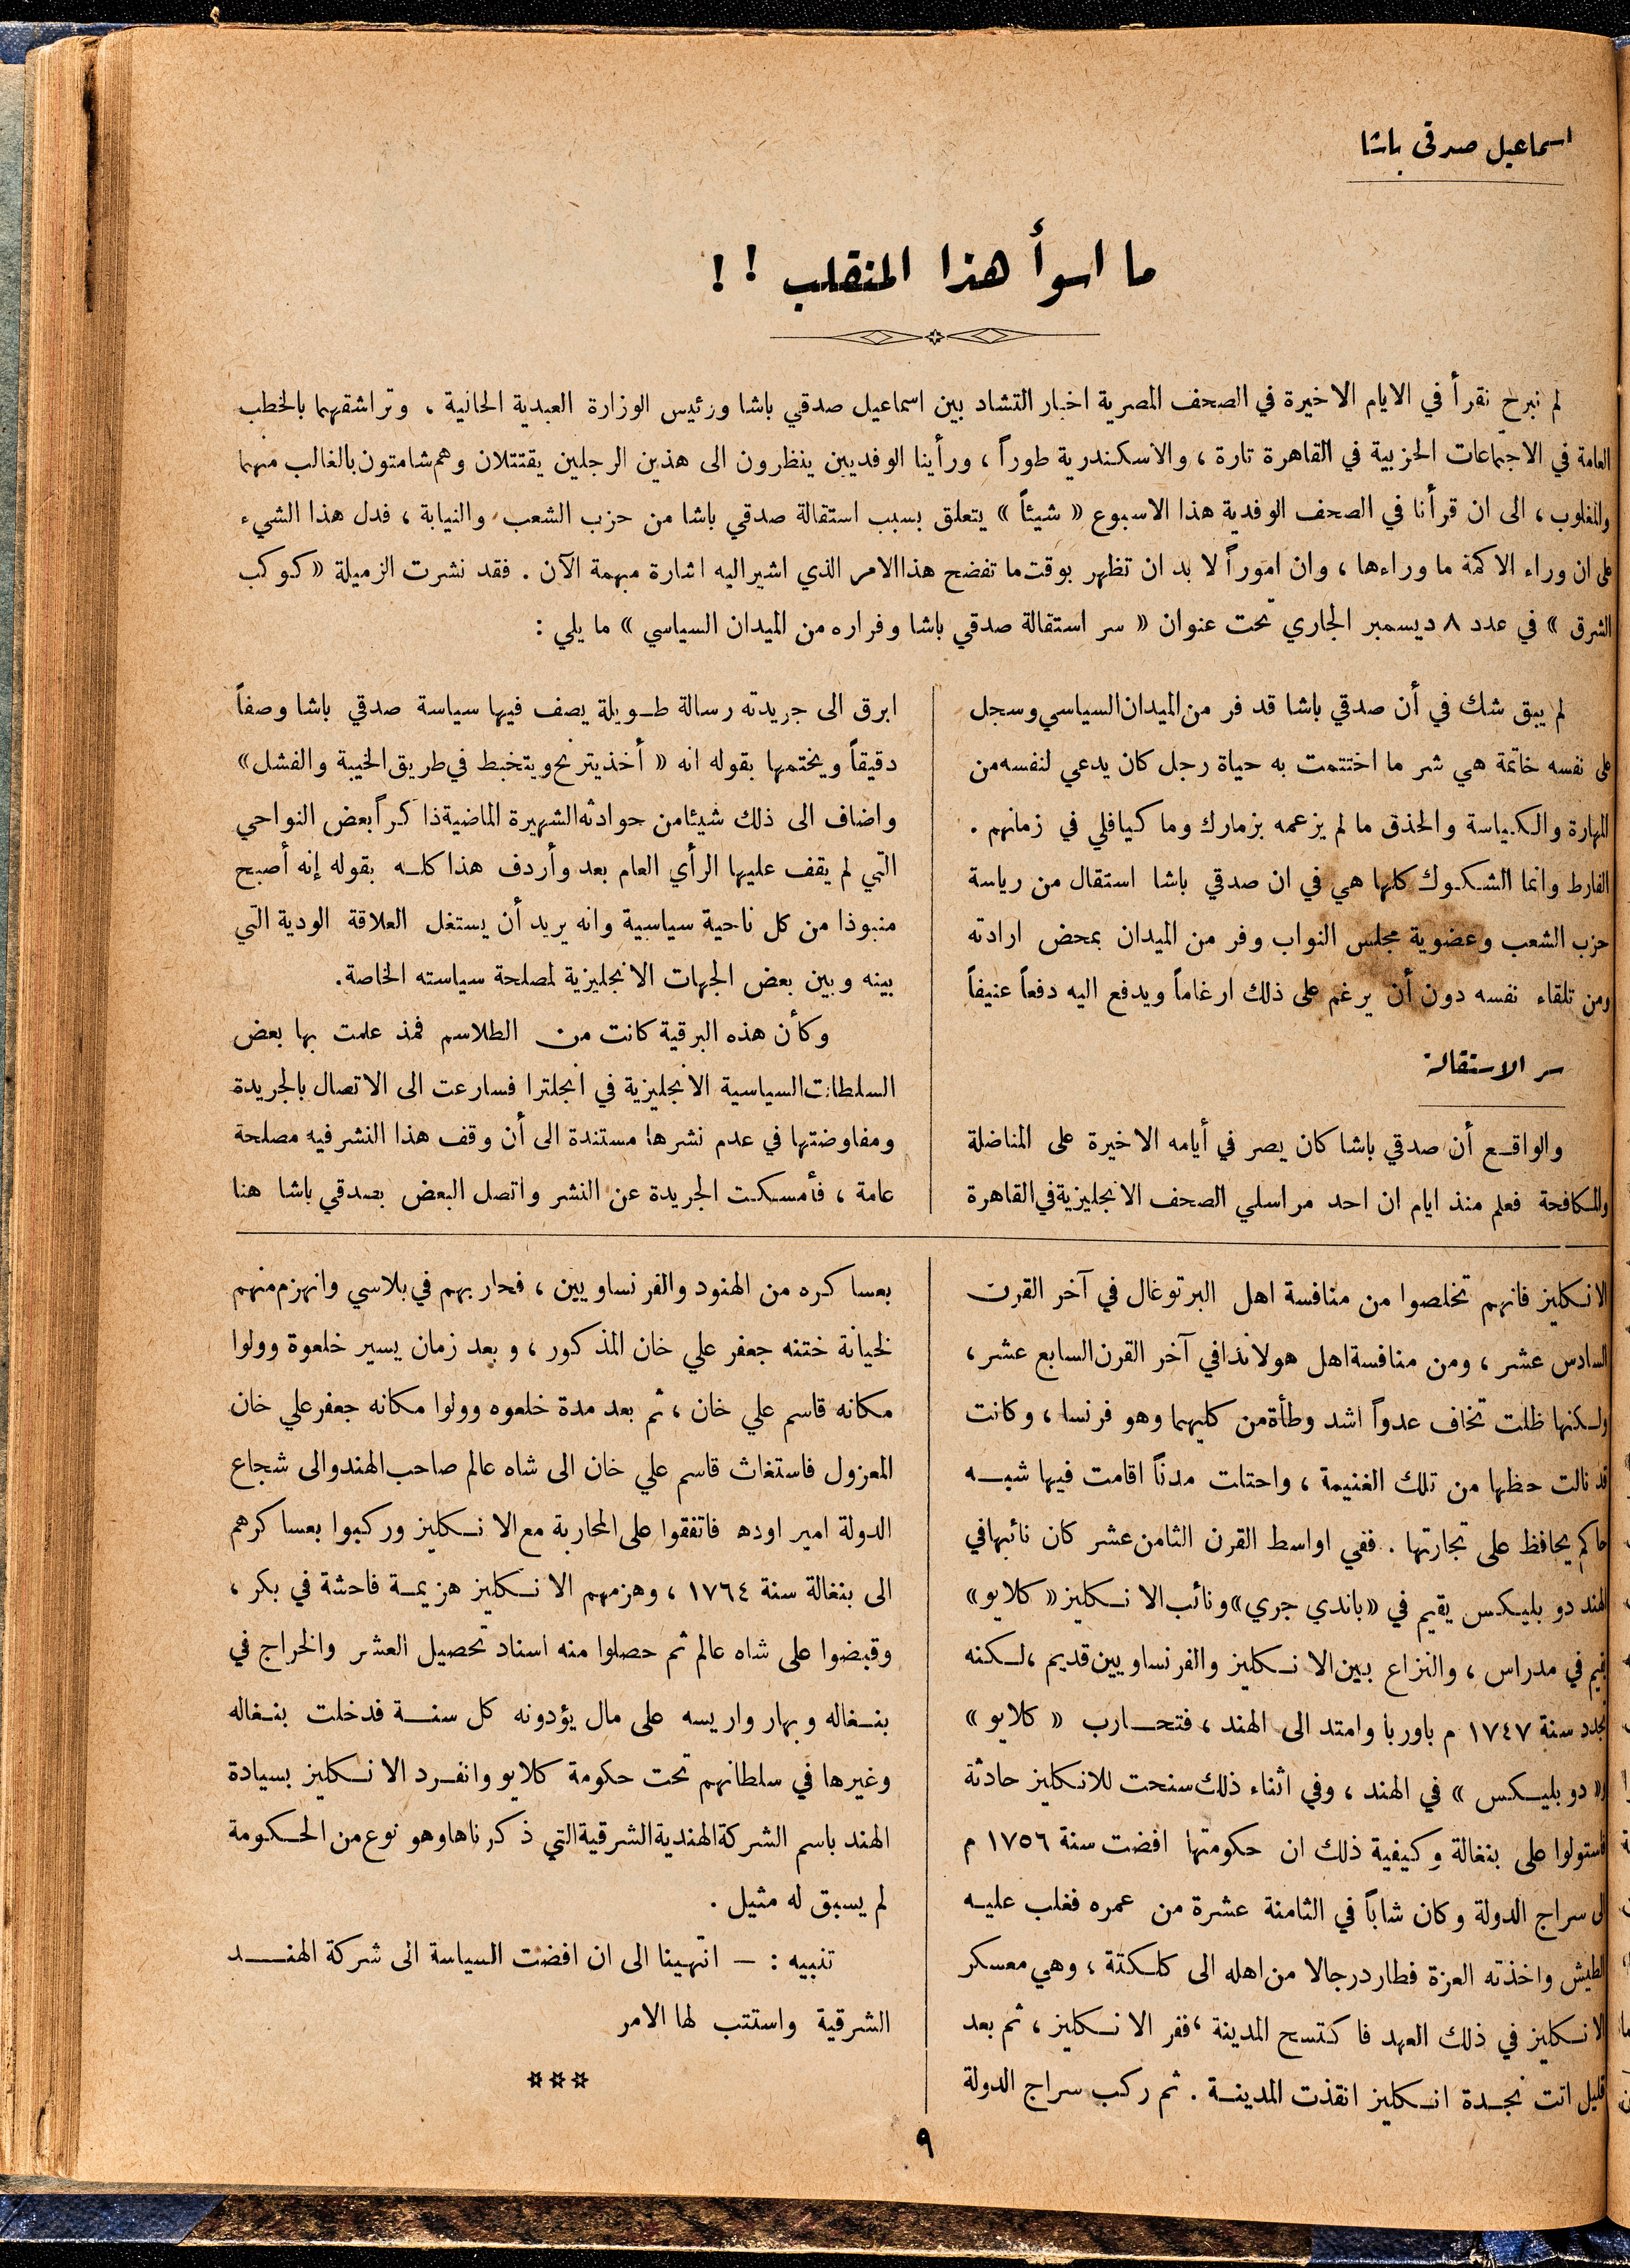 اسماعيل صدقى باشا
ما اسوأ هذا المنقلب ! !
لم نبرح نقرأ في الايام الاخيرة في الصحف المصرية اخبار التشاد بين اسماعيل صدقي باشا ورئيس الوزارة العبدية الحالية ، وتراشقهما بالخطب
العامة في الاجتماعات الحزبية في القاهرة تارة ، والاسكندرية طوراً ، ورأينا الوفديين ينظرون الى هذين الرجلين يقتتلان وهم شامتون بالغالب منهما
والمغلوب ، الى ان قرأنا في الصحف الوفدية هذا الاسبوع « شيئاً » يتعلق بسبب استقالة صدقي باشا من حزب الشعب والنيابة ، فدل هذا الشيء
على ان وراء الاكمة ما وراءها ، وان اموراً لا بد ان تظهر بوقت ما تفضح هذا الامر الذي اشير اليه اشارة مبهمة الآن . فقد نشرت الزميلة « كوكب
الشرق » في عدد ٨ ديسمبر الجاري تحت عنوان « سر استقالة صدقي باشا وفراره من الميدان السياسي » ما يلي :
لم يبق شك في أن صدقي باشا قد فر من الميدان السياسي وسجل
على نفسه خاتمة هي شر ما اختتمت به حياة رجل كان يدعي لنفسه من
المهارة والكياسة والحذق ما لم يزعمه بزمارك وما كيافلي في زمانهم .
الفارط وانما الشكوك كلها هي في ان صدقي باشا استقال من رياسة
حزب الشعب وعضوية مجلس النواب وفر من الميدان بمحض ارادته
ومن تلقاء نفسه دون أن يرغم على ذلك ارغاماً ويدفع اليه دفعاً عنيفاً
سر الاستقالة
والواقع أن صدقي باشا كان يصر في أيامه الاخيرة على المناضلة
والمكافحة فعلم منذ ايام ان احد مراسلي الصحف الانجليزية في القاهرة
ابرق الى جريدته رسالة طويلة يصف فيها سياسة صدقي باشا وصفاً
دقيقاً ويختمها بقوله انه « أخذ يترنح ويتخبط في طريق الخيبة والفشل »
واضاف الى ذلك شيئا من حوادثه الشهيرة الماضية ذاكراً بعض النواحي
التي لم يقف عليها الرأي العام بعد وأردف هذا كله بقوله إنه أصبح
منبوذا من كل ناحية سياسية وانه يريد أن يستغل العلاقة الودية التي
بينه وبين بعض الجهات الانجليزية لمصلحة سياسته الخاصة.
وكأن هذه البرقية كانت من الطلاسم فمذ علمت بها بعض
السلطات السياسية الانجليزية في انجلترا فسارعت الى الاتصال بالجريدة
ومفاوضتها في عدم نشرها مستندة الى أن وقف هذا النشر فيه مصلحة
عامة ، فأمسكت الجريدة عن النشر واتصل البعض بصدقي باشا هنا
الانكليز فانهم تخلصوا من منافسة اهل البرتوغال في آخر القرن
السادس عشر ، ومن منافسة اهل هولاندا في آخر القرن السابع عشر ،
ولكنها ظلت تخاف عدواً اشد وطأة من كليهما وهو فرنسا ، وكانت
قد نالت حظها من تلك الغنيمة ، واحتلت مدناً اقامت فيها شبه
حاكم يحافظ على تجارتها . ففي اواسط القرن الثامن عشر كان نائبها في
الهند دوبليكس يقيم في « باندي جري » ونائب الانكليز « كلايو »
يقيم في مدراس ، والنزاع بين الانكليز والفرنساويين قديم ، لكنه
تجدد سنة ١٧٤٧ م باوربا وامتد الى الهند ، فتحارب « كلايو »
و« دوبليكس » في الهند ، وفي اثناء ذلك سنحت للانكليز حادثة
فاستولوا على بنغالة وكيفية ذلك ان حكومتها افضت سنة ١٧٥٦ م
الى سراج الدولة وكان شاباً في الثامنة عشرة من عمره فغلب عليه
الطيش واخذته العزة فطارد رجالا من اهله الى كلكتة ، وهي معسكر
الانكليز في ذلك العهد فاكتسح المدينة ، ففر الانكليز ، ثم بعد
قليل اتت نجدة انكليز انقذت المدينة . ثم ركب سراج الدولة
بعساكره من الهنود والفرنساويين ، فحاربهم في بلاسي وانهزم منهم
لخيانة ختنه جعفر علي خان المذكور ، وبعد زمان يسير خلعوة وولوا
مكانه قاسم علي خان ، ثم بعد مدة خلعوه وولوا مكانه جعفر علي خان
المعزول فاستغاث قاسم علي خان الى شاه عالم صاحب الهند والى شجاع
الدولة امير اوده فاتفقوا على المحاربة مع الانكليز وركبوا بعساكرهم
الى بنغالة سنة ١٧٦٤ ، وهزمهم الانكليز هزيمة فاحشة في بكر ،
وقبضوا على شاه عالم ثم حصلوا منه اسناد تحصيل العشر والخراج في
بنغاله وبهار واريسه على مال يؤدونه كل سنة فدخلت بنغاله
وغيرها في سلطانهم تحت حكومة كلايو وانفرد الانكليز بسيادة
الهند باسم الشركة الهندية الشرقية التي ذكرناها وهو نوع من الحكومة
لم يسبق له مثيل .
تنبيه : — انتهينا الى ان افضت السياسة الى شركة الهند
الشرقية واستتب لها الامر
٩